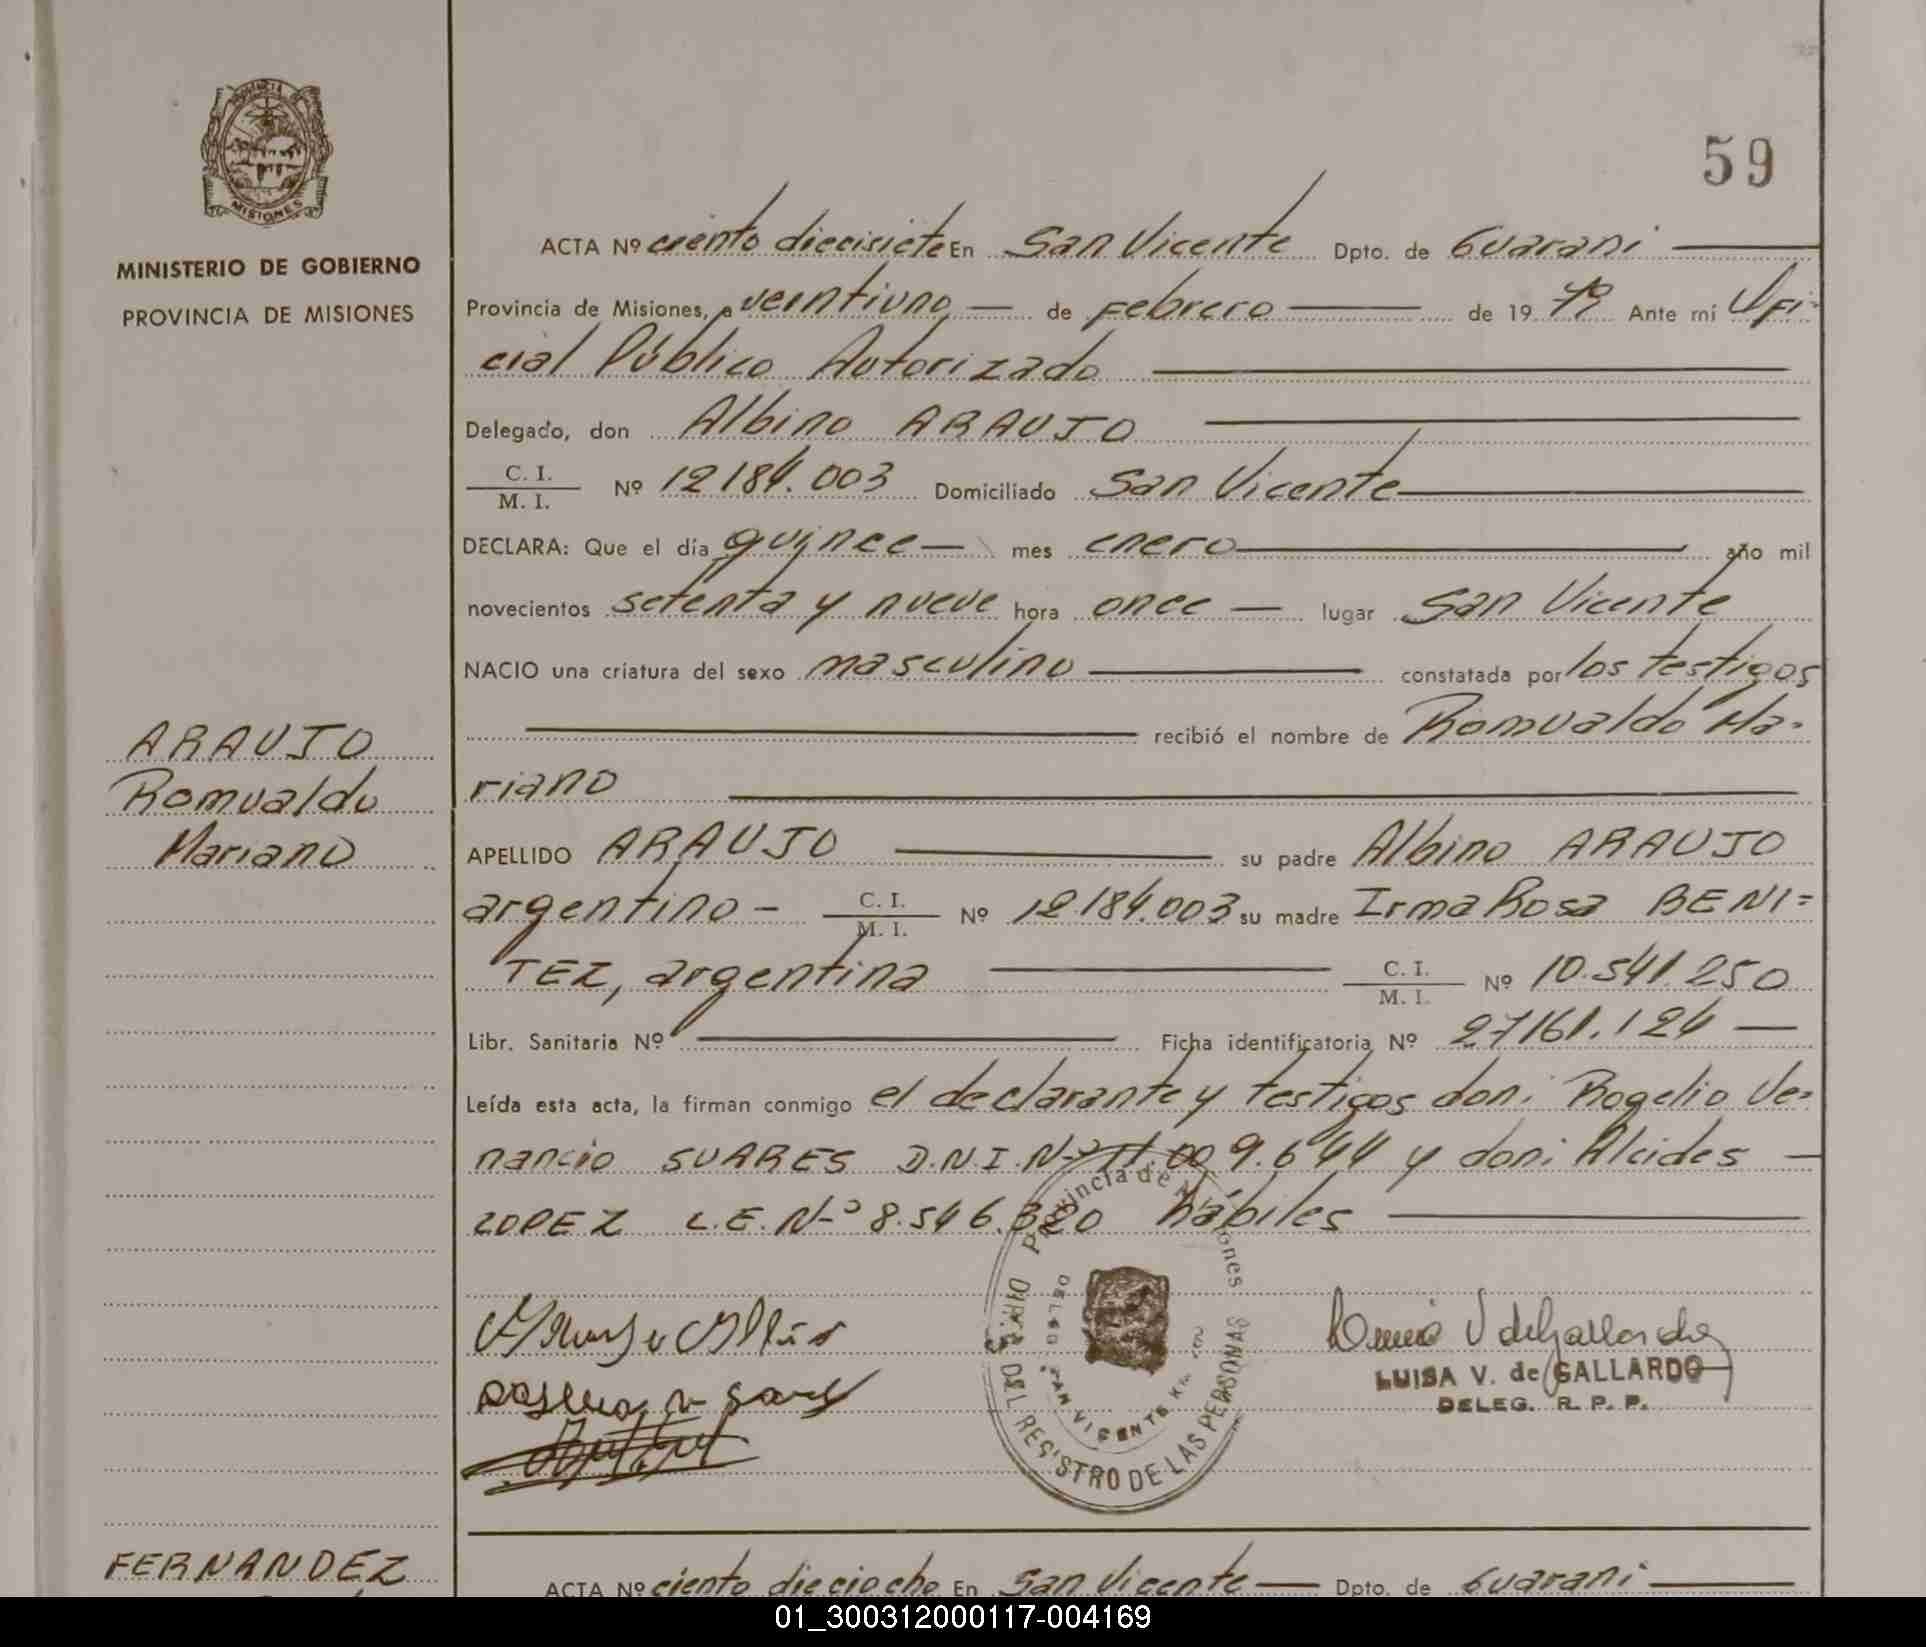 PROVINCIA DE
MISIONES
59
MINISTERIO DE GOBIERNO
PROVINCIA DE MISIONES
ACTA Nº ciento diecisiete En San Vicente Dpto. de Guarani
Provincia de Misiones, a veintiuno de Febrero de 19 79 Ante mí Ofi-
cial Público Autorizado
Delegado, don Albino ARAUJO
C. I.
M. I. Nº 12184.003 Domiciliado San Vicente
DECLARA: Que el día quince mes enero año mil
novecientos setenta y nueve hora once lugar San Vicente
NACIO una criatura del sexo masculino constatada por los testigos
recibió el nombre de Romualdo Ma-
riano
ARAUJO
Romualdo
Mariano
APELLIDO ARAUJO su padre Albino ARAUJO
argentino - C. I. M. I. Nº 12.184.003 su madre Irma Rosa BENI=
TEZ, argentina C. I. M. I. Nº 10.541.250
Libr. Sanitaria Nº Ficha identificatoria Nº 27161.124
Leída esta acta, la firman conmigo el declarante y testigos don: Rogelio Ve-
nancio SUARES D.N.I. Nº 11.009.644 y don: Alcides
LOPEZ L.E. Nº 8.546.320 hábiles
Provincia de Misiones
DIR. G. DEL REGISTRO DE LAS PERSONAS
DELEG. SAN VICENTE
LUISA V. de GALLARDO
DELEG. R. P. P.
FERNANDEZ
ACTA Nº ciento dieciocho En San Vicente Dpto. de Guarani
01_300312000117-004169